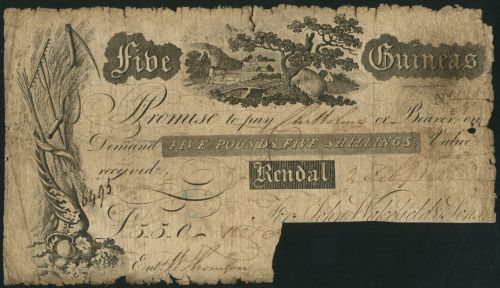 Five Guineas
No
Promise to pay or Bearer on
Demand FIVE POUNDS FIVE SHILLINGS Value
received
Kendal
6495
£5.5.0
For John Wakefield & Sons
Entd Thomson